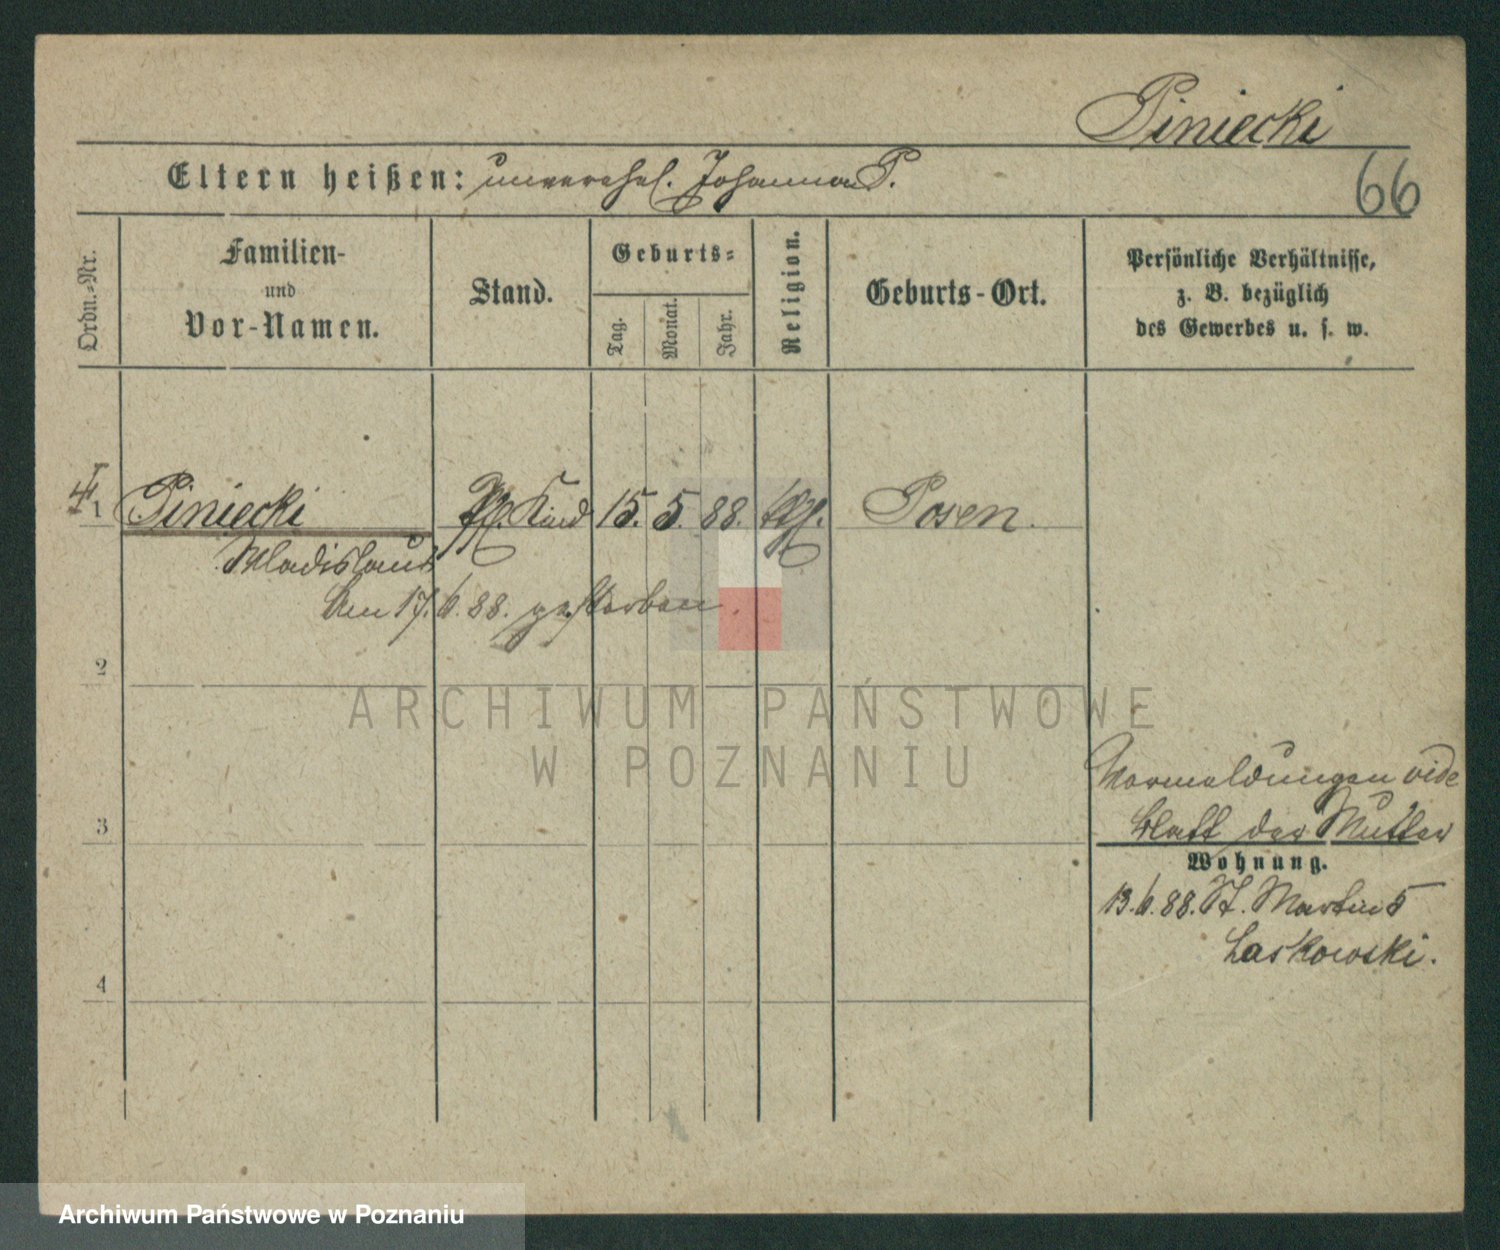 Piniecki
Eltern heißen: unverehel. Johanna P.
66
Ordn.-Nr.
Familien-
und
Vor-Namen.
Stand.
Geburts-
Tag.
Monat.
Jahr.
Religion.
Geburts-Ort.
Persönliche Verhältnisse,
z. B. bezüglich
des Gewerbes u. s. w.
1 Piniecki Kind 15. 5. 88. Posen.
Wladislaus
Am 17. 6. 88. gestorben.
2
ARCHIWUM PAŃSTWOWE
W POZNANIU
Vormeldungen vide
Blatt der Mutter
3
Wohnung.
13. 6. 88. St. Martin 5
Laskowski.
4
Archiwum Państwowe w Poznaniu